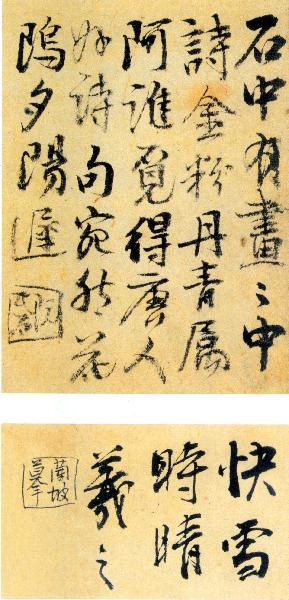 石中有畫〻中
詩金粉丹青属
阿誰覓得唐人
好詩句宛然花
隖夕陽遲
快雪
時晴
羲之
蘭坡